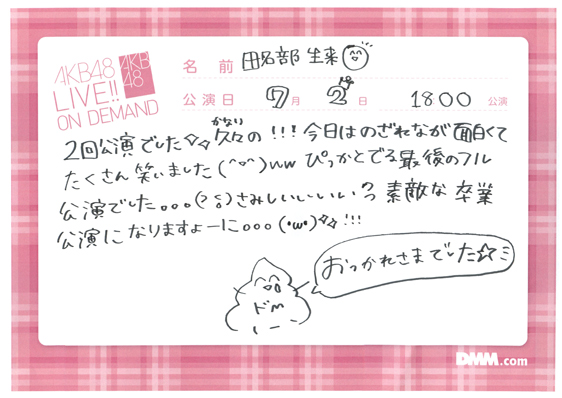 AKB48
LIVE!!
ON DEMAND
AKB
48
名前 田名部生来
公演日 7月2日 1800 公演
かなり
2回公演でした☆☆久々の!!!今日はのざれなが面白くて
たくさん笑いました(^o^)ww ぴっかとでる最後のフル
公演でした。。。さみしいーいーいい 素敵な卒業
公演になりますよーに。。。(・ω・)☆☆!!!
おつかれさまでした☆ミ
ドM
DMM.com